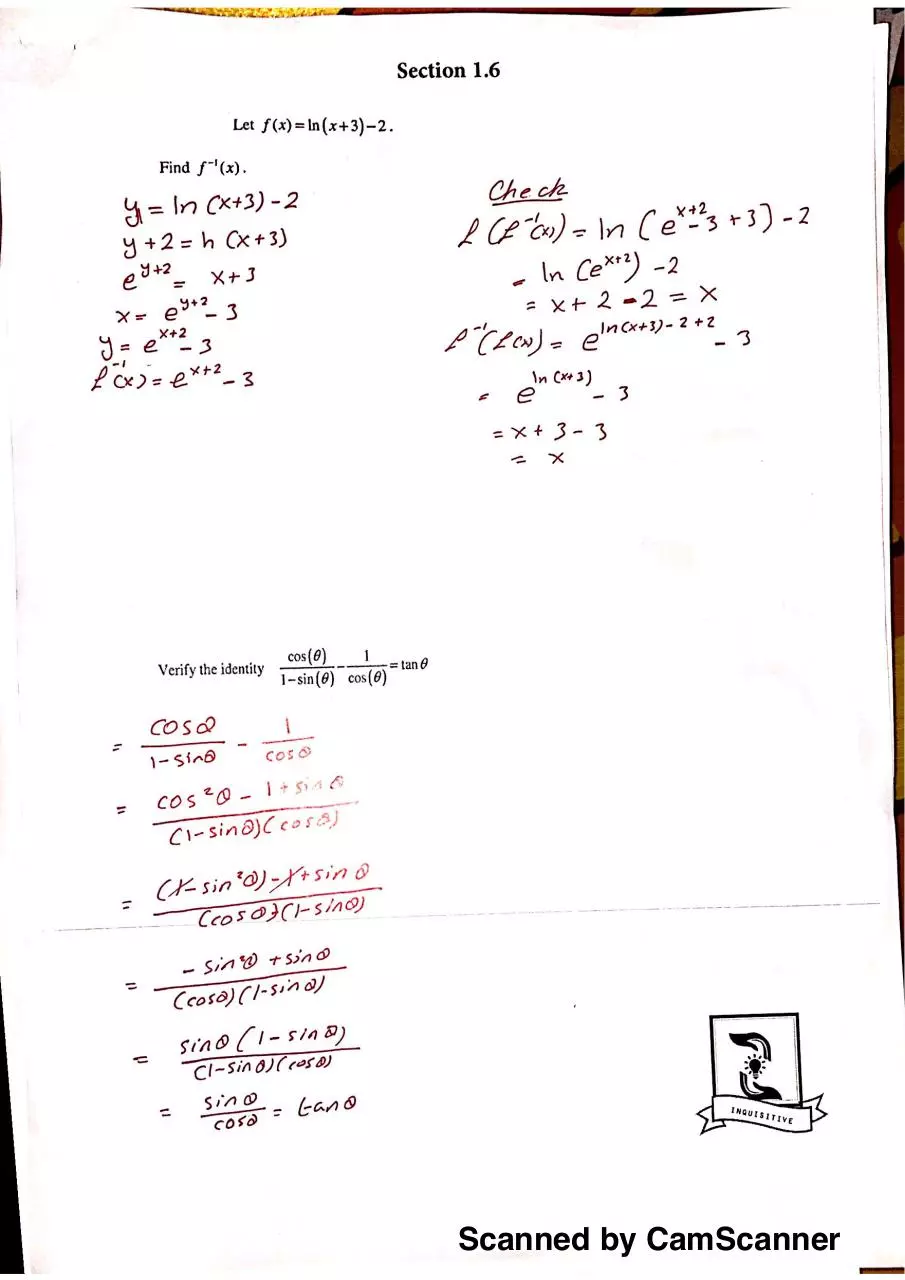 Section 1.6
Let f(x)=ln(x+3)−2.
Find f⁻¹(x).
y = ln (x+3) - 2
y + 2 = ln (x+3)
e^(y+2) = x+3
x = e^(y+2) - 3
y = e^(x+2) - 3
f⁻¹(x) = e^(x+2) - 3
Check
f (f⁻¹(x)) = ln (e^(x+2) - 3 + 3) - 2
= ln (e^(x+2)) - 2
= x + 2 - 2 = x
f⁻¹(f(x)) = e^(ln(x+3) - 2 + 2) - 3
= e^(ln (x+3)) - 3
= x + 3 - 3
= x
Verify the identity cos(θ)/(1−sin(θ)) − 1/cos(θ) = tan θ
= cosθ/(1-sinθ) - 1/cosθ
= (cos²θ - 1 + sin θ)/((1-sinθ)(cosθ))
= ((1-sin²θ) - 1 + sin θ)/((cosθ)(1-sinθ))
= (- sin²θ + sinθ)/((cosθ)(1-sinθ))
= sinθ (1 - sinθ)/((1-sinθ)(cosθ))
= sinθ/cosθ = tanθ
INQUISITIVE
Scanned by CamScanner